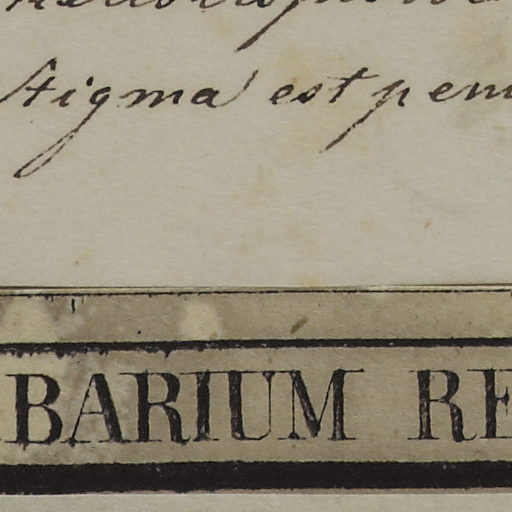 Stigma est pen
BARIUM RE